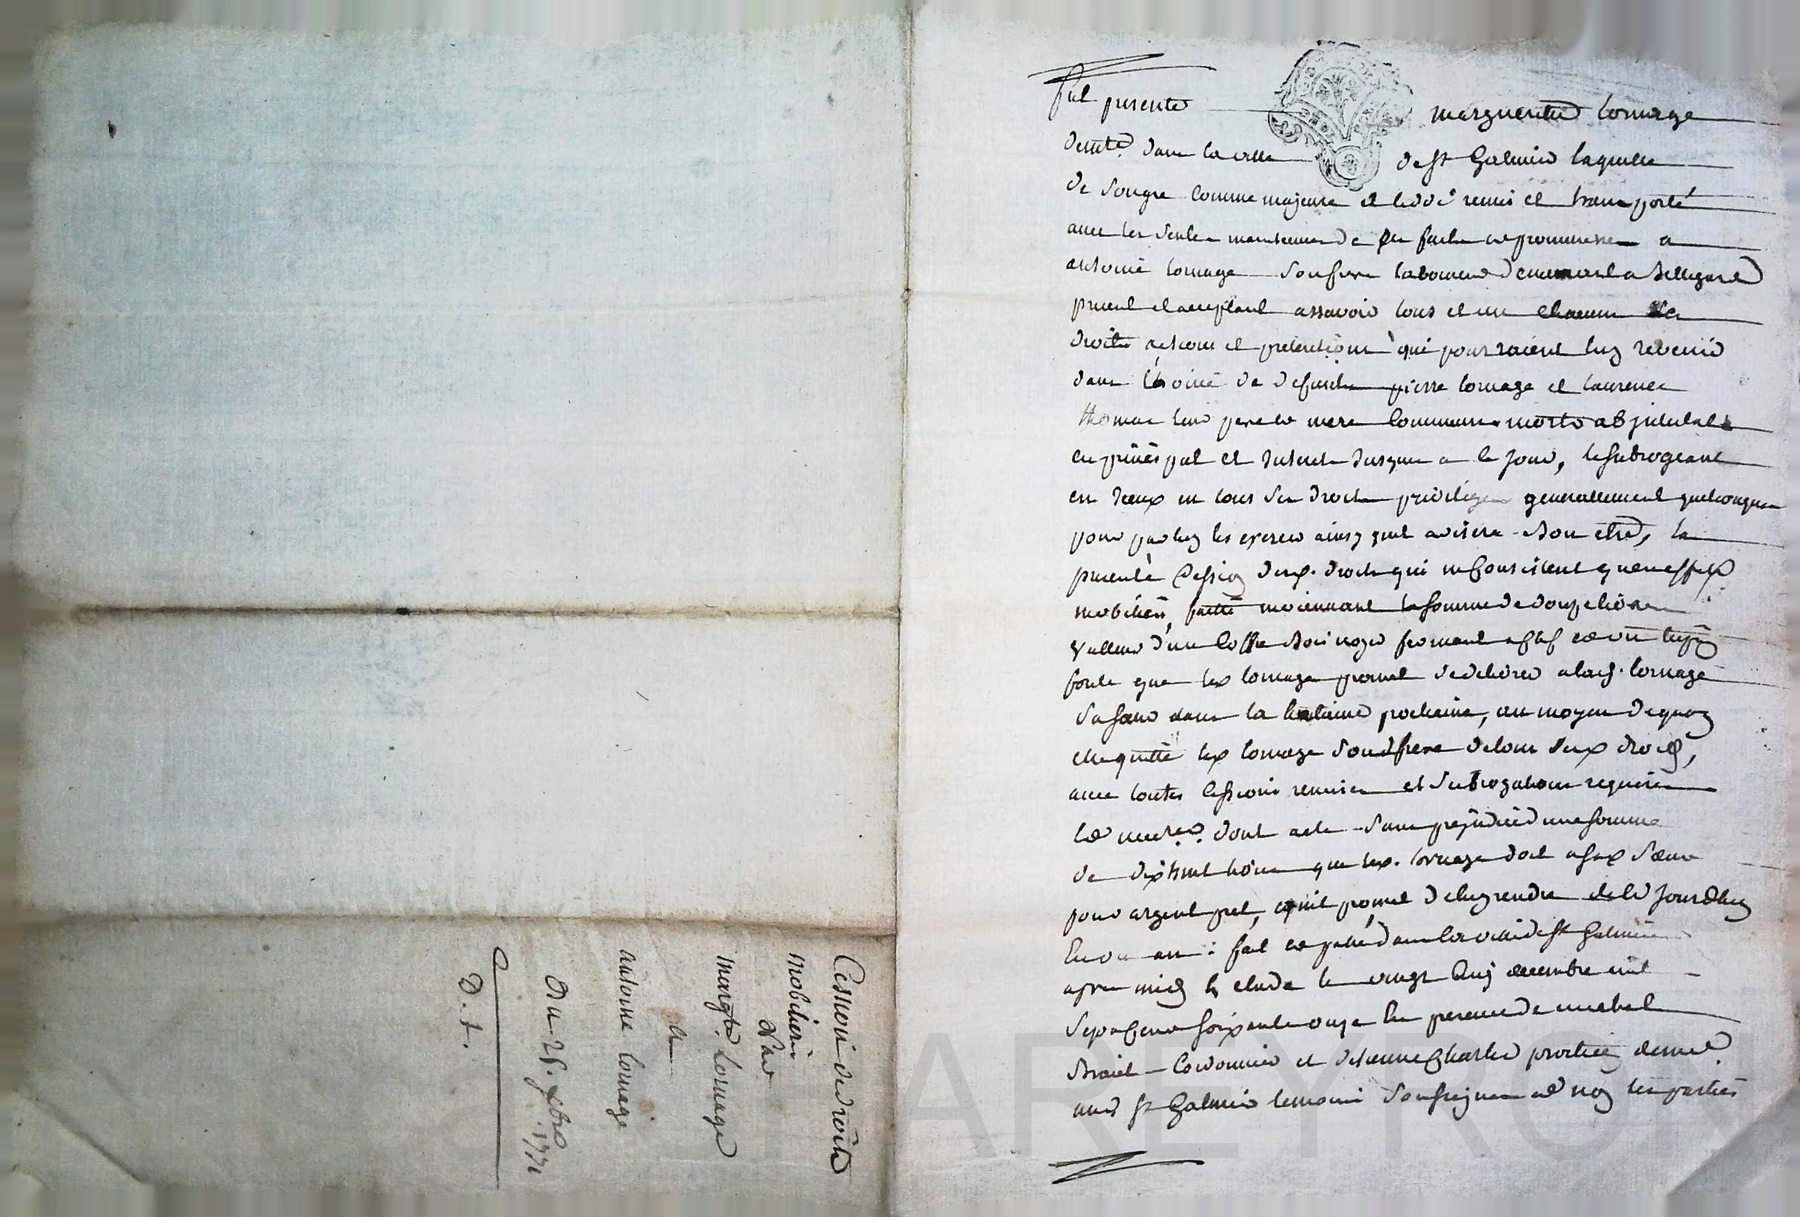 Cession de droits
mobiliers
Par
Margte. Lornage
a
antoine Lornage
Du 25. xbre. 1771
D. t.
fut presente marguerite Lornage
demte. dans la ville de st Galmier laquelle
de son gre comme majeure et cedé remis et transporté
avec les seules maintenues de ses faits et promesses a
antoine Lornage son frere laboureur demeurant a Bellegarde
present et acceptant assavoir tous et un chacun les
droits actions et pretentions qui pourraient luy revenir
dans de defunts pierre Lornage et Laurence
thomas leur pere et mere communs morts ab intestat
en principal et interets jusques a ce jour, le subrogeant
en iceux en tous ses droits privileges generallement quelconques
pour par luy les exercer ainsy quil avisera bon etre, la
presente cession desd. droits qui ne consistent quen effets
mobiliers, faitte moiennant la somme de douze livres
valleur d'une coffre bois noyer fermant a clef et
que led Lornage promet de delivrer a lad. Lornage
sa sœur dans la huitaine prochaine, au moyen de quoy
elle quitte led Lornage son frere de tous sesd droits,
avec toutes cessions remises et subrogations requises
dont acte sans prejudice d'une somme
de dixhuit livres que led. Lornage doit a sad sœur
pour argent pret, quil promet de luy rendre de ce jourdhuy
en un an : fait et passé dans la ville de st Galmier
apres midy etude le vingt cinq decembre mil
sept cent soixante onze en presence de michel
cordonnier et de praticien demt.
aud st Galmier temoins soussignes et non les parties